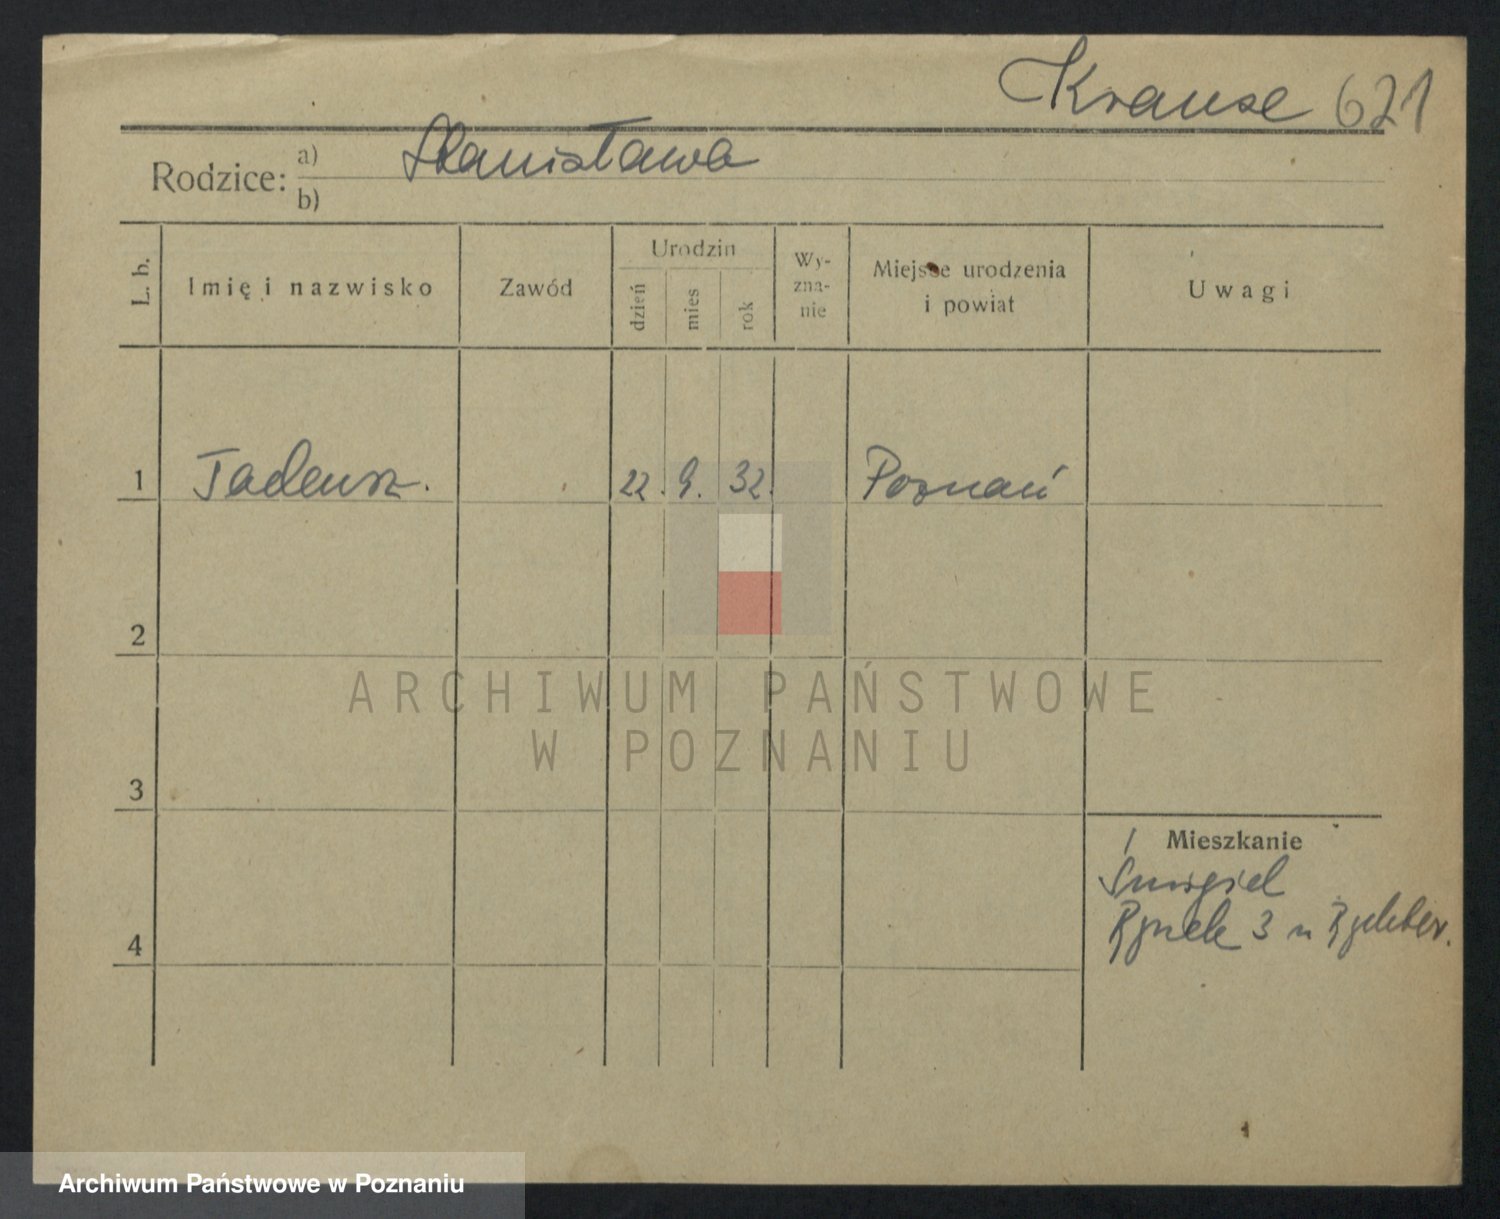 Krause 621
Rodzice: a) Stanisława
b)
L. b.
Imię i nazwisko
Zawód
Urodzin
dzień
mies
rok
Wy-
zna-
nie
Miejsce urodzenia
i powiat
Uwagi
1 Tadeusz. 22. 9. 32. Poznań
2
ARCHIWUM PAŃSTWOWE
W POZNANIU
3
Mieszkanie
Śmigiel
Rynek 3 u
4
Archiwum Państwowe w Poznaniu